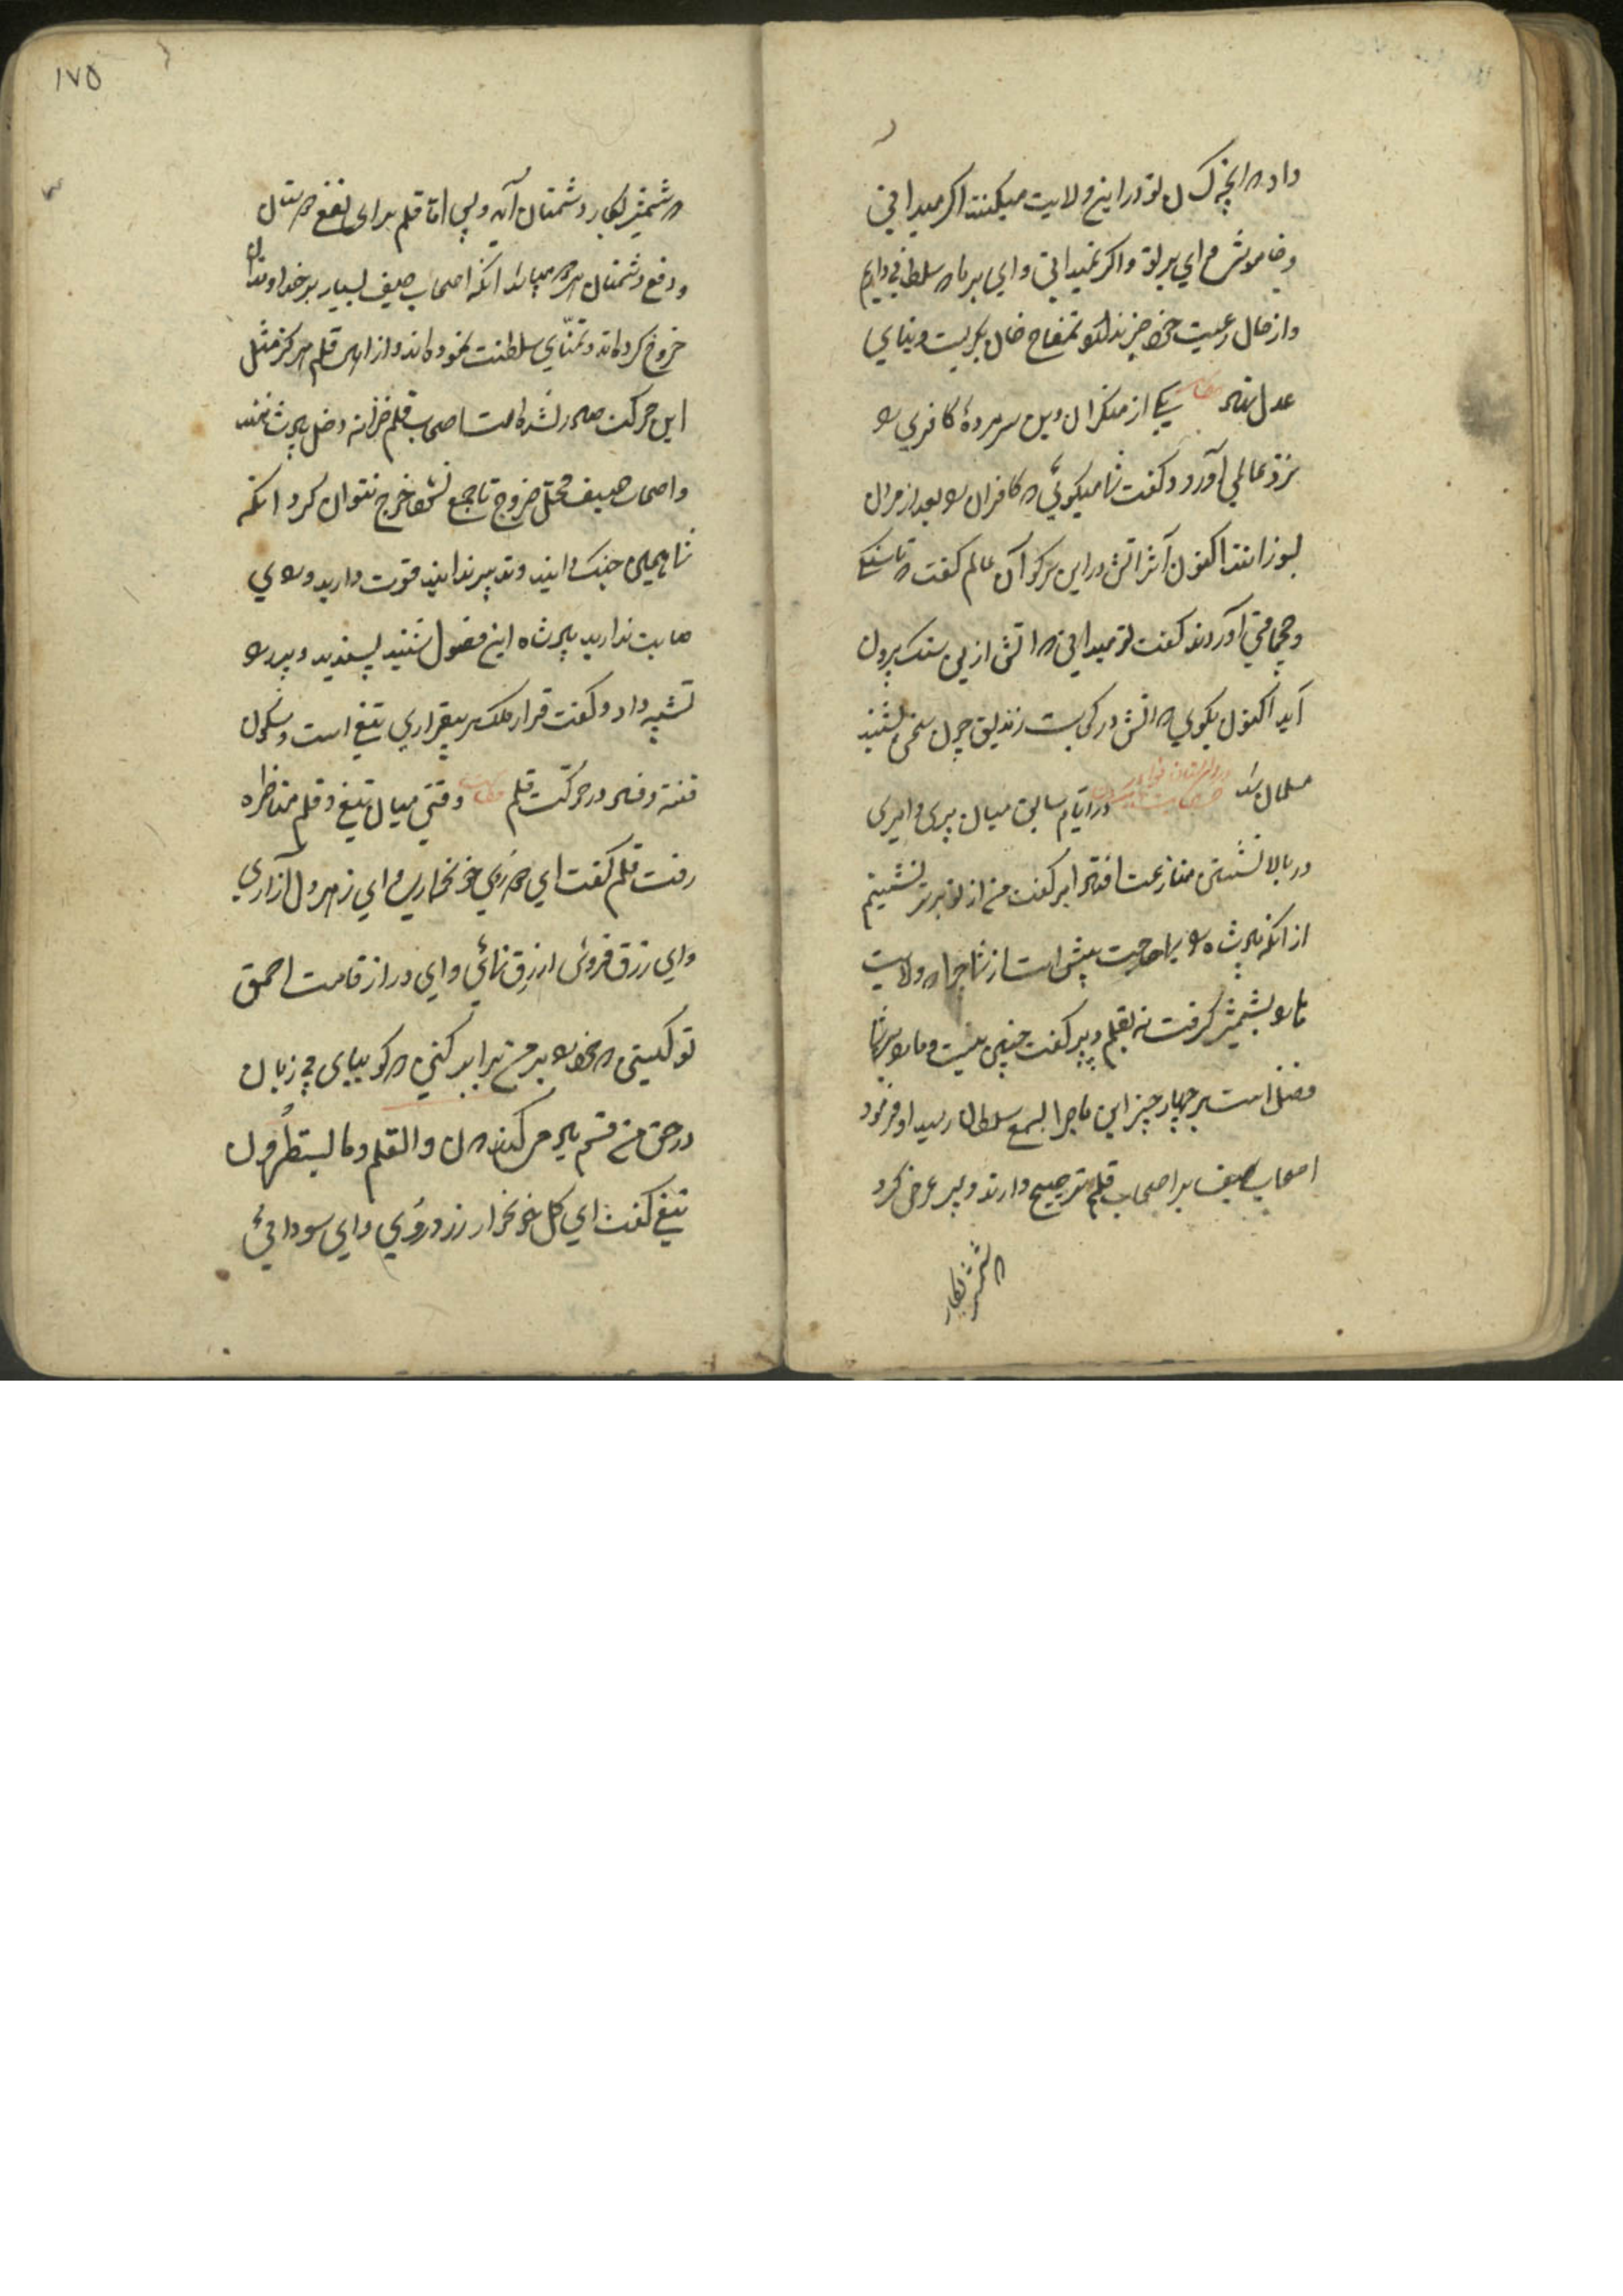 داد که انچه کسان تو در این ولایت میکنند اکر میدانی
و خاموش وای بر تو و اکر نمیدانی وای بر ما که سلطانی داریم
و از حال رعیت خود خبر ندارد تمغاج خان بکریست و بنای
عدل نهاد حکایت یکی از منکران دین سر مردهٔ کافری را
نزد عالمی آورد و کفت شما میکوئی که کافران را بعد از مردن
بسوزانند اکنون آثر اتش در این سر کو آن عالم کفت تا سنکی
و چخماقی آوردند کفت تو میدانی که اتش ازین سنک برون
آید اکنون بکوی که اتش در کجاست زندیق چون سخن بشنید
مسلمان شد حکایت در ایام سابق میان پیری و امیری
در بالا نشستن منازعت افتاد امیر کفت من از تو برتر نشینم
از انکه پادشاه را احتیاج بیش است از شما چرا که ولایت
را بشمشیر کرفت نه بقلم دبیر کفت چنین نیست و ما را بر شما
فضل است بر چهار چیز این ماجرا بسمع سلطان رسید او فرمود
اصحاب سیف بر اصحاب قلم ترجیح دارند دبیر عرض کرد
که شمشیر بکار
که شمشیر بکار دشمنان آید و بس اما قلم برای نفع دوستان
و دفع دشمنان هر دو میباشد انکه اصحاب سیف بسیار بر خداوندان
خروج کرده اند و تمنّای سلطنت نموده اند و از اهل قلم هرکز مثل
این حرکت صادر نشده است اصحاب قلم خزانه دخل پادشاهند
و اصحاب سیف محل خروج تا جمع نشود خرج نتوان کرد انکه
شما همین جنک دانید و تدبیر ندانید قوت دارید و رای
صایب ندارید پادشاه این فضول شنید پسندید و دبیر را
تشبیه داد و کفت قرار ملک بر بیقراری تیغ است و سکون
فتنه و فساد در حرکت قلم حکایت وقتی میان تیغ و قلم مناظره
رفت قلم کفت ای دو روی خونخوار و ای زهر دل آزاری
وای زرق فروش ازرق نمائی و ای دراز قامت احمق
تو کیستی که خود را بر من برابر کنی که کویای بی زبان
در حق من قسم یاد میکند که ن والقلم وما یسطُرون
تیغ کفت ای کل خونخوار زرد روی و ای سودائی